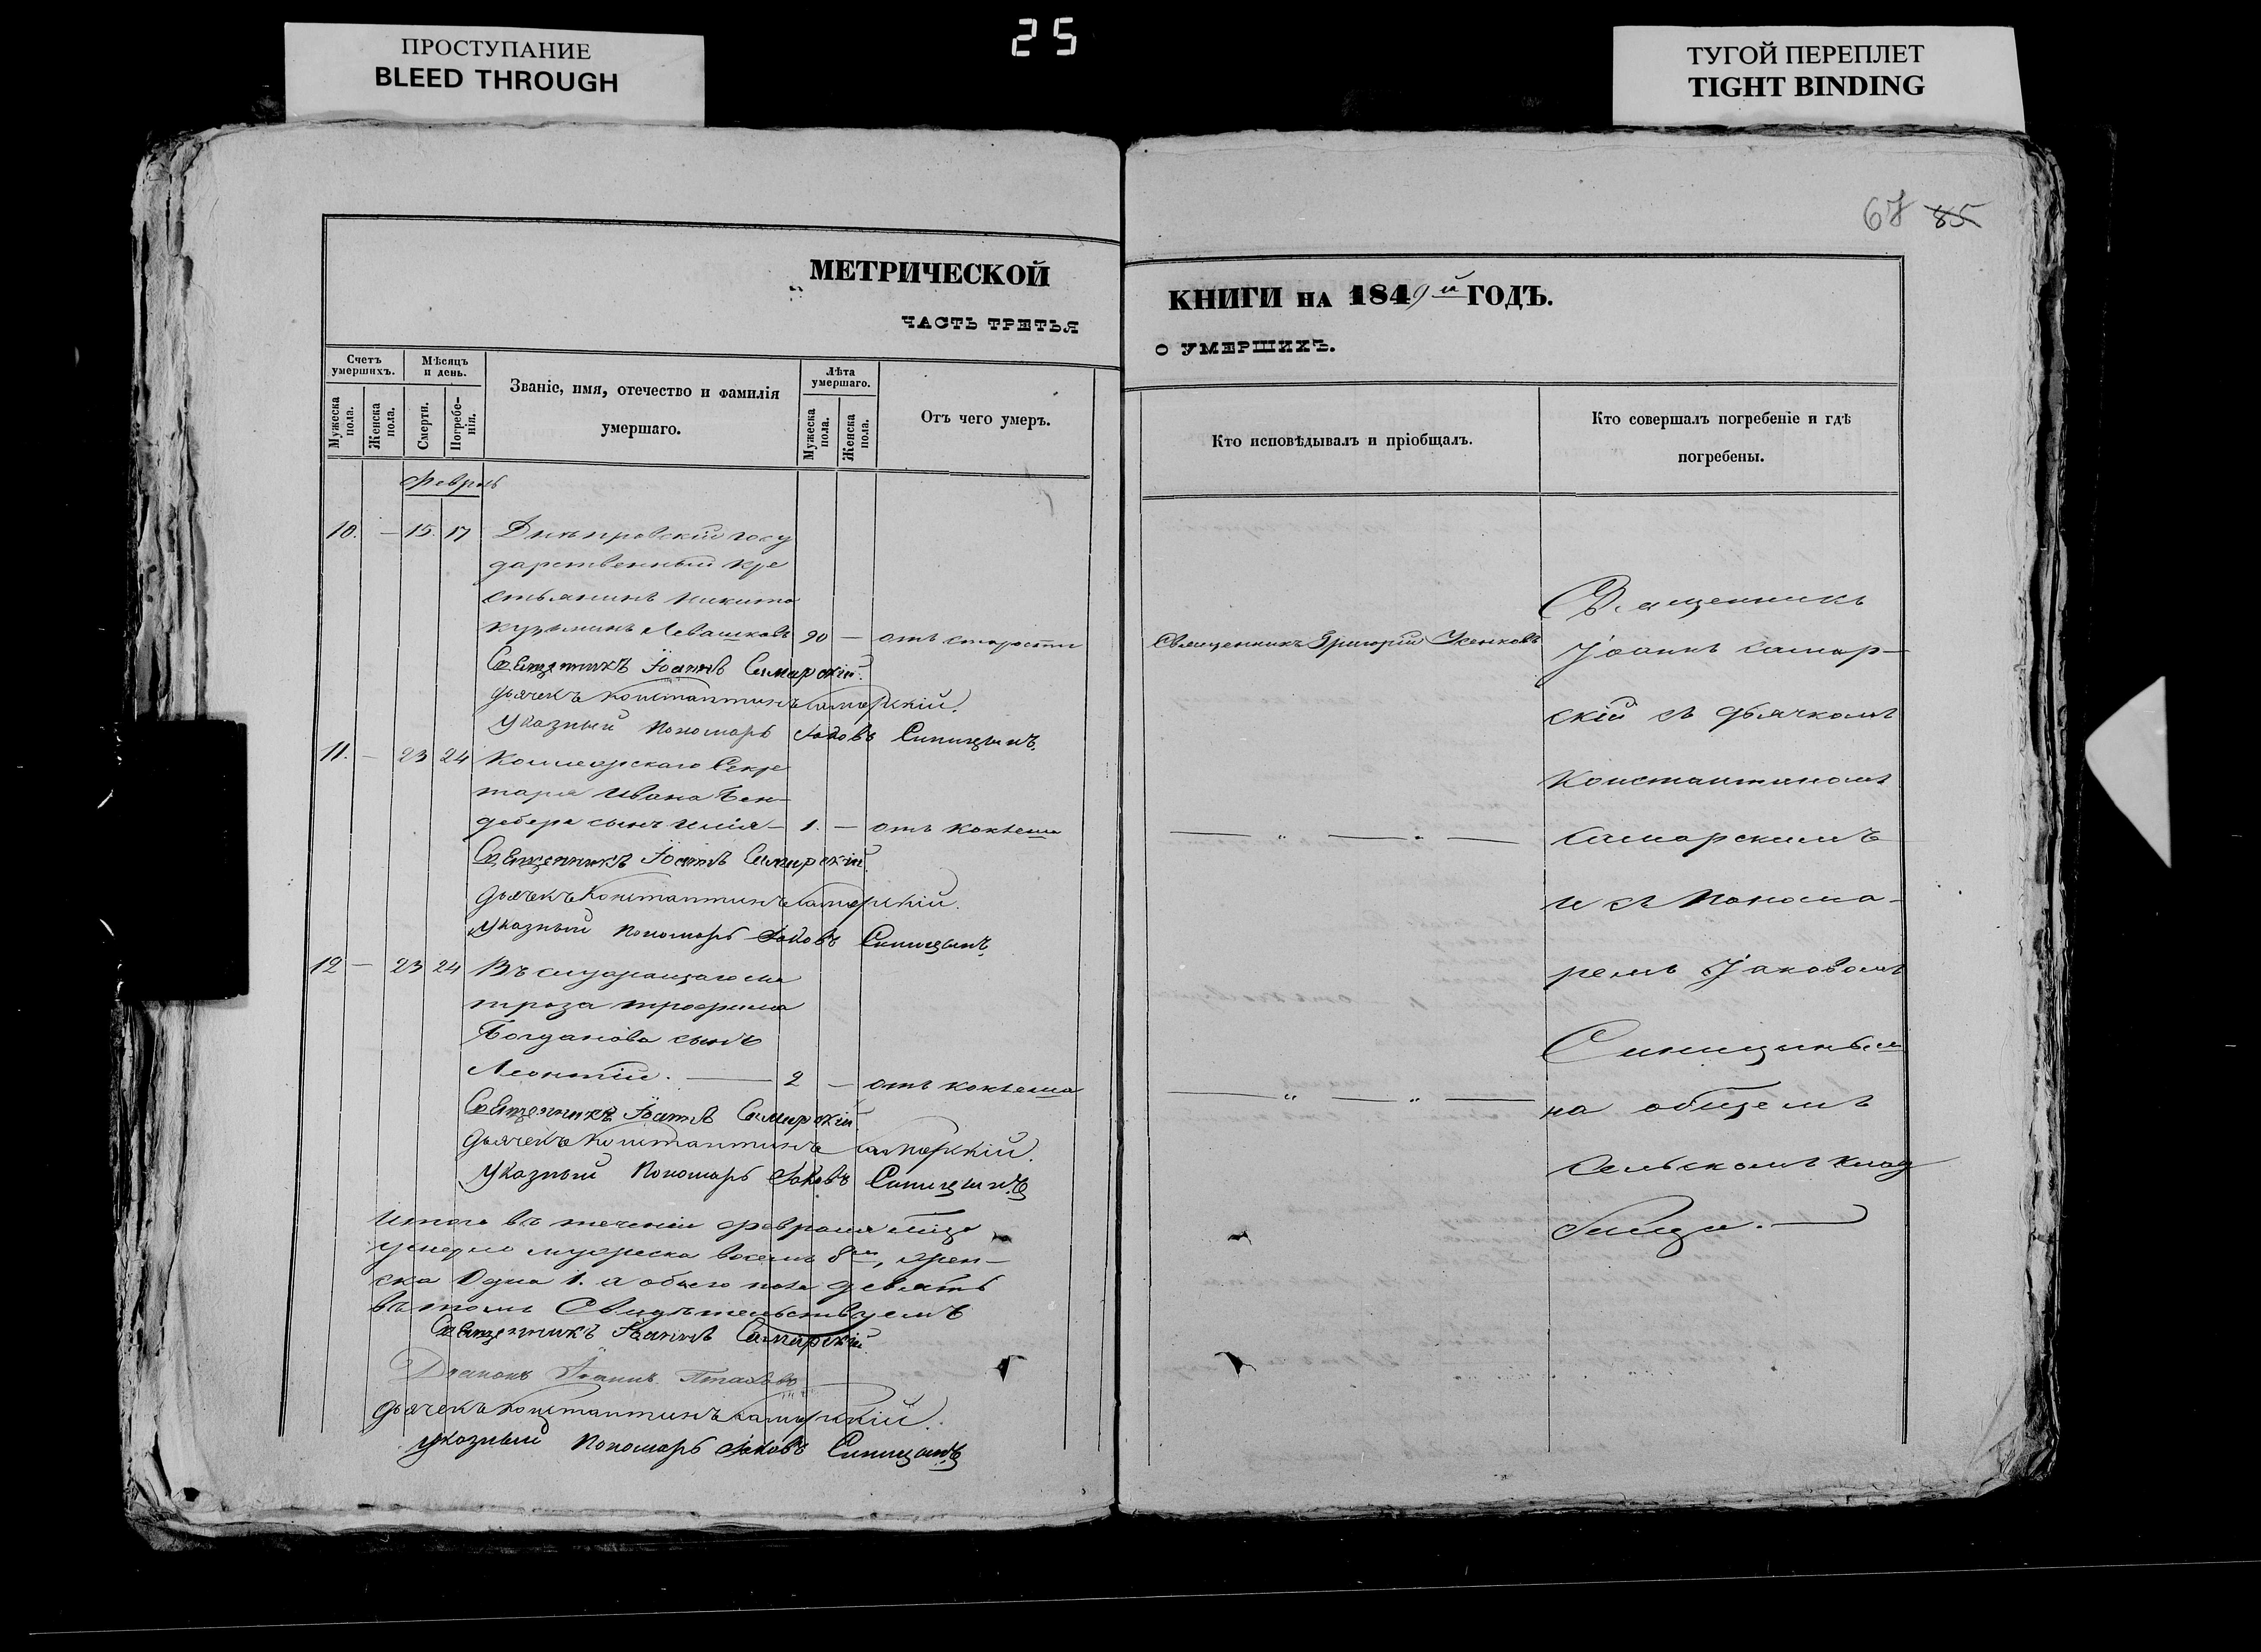 ПРОСТУПАНИЕ
BLEED THROUGH
25
ТУГОЙ ПЕРЕПЛЕТ
TIGHT BINDING
67 85
МЕТРИЧЕСКОЙ
ЧАСТЬ ТРЕТЬЯ
Счетъ умершихъ.
Мужеска пола.
Женска пола.
Мѣсяцъ и день.
Смерти.
Погребе-
нія.
Званіе, имя, отечество и фамилія
умершаго.
Лѣта умершаго.
Мужеска пола.
Женска пола.
Отъ чего умеръ.
Февраль
10. — 15. 17 Днѣпровскій госу
дарственный кре
стьянинъ Никита
Кузьминъ Левашковъ 90 — отъ старости
Священникъ Іоаннъ Самарскій.
Дьячекъ Константинъ Самарскій.
Указный Пономарь Іаковъ Синицынъ.
11. — 23 24 Коллежскаго Секре
таря Ивана Бен-
дебери сынъ Илія — 1. — отъ коклюша
Священникъ Іоаннъ Самарскій.
Дьячекъ Константинъ Самарскій.
Указный Пономарь Іаковъ Синицынъ.
12 — 23 24 Въ служащаго ма
троза Трофима
Богданова сынъ
Леонтій. — 2 — отъ коклюша
Священникъ Іоаннъ Самарскій
Дьячекъ Константинъ Самарскій.
Указный Пономарь Іаковъ Синицынъ
Итого въ теченіи февраля м-ца
умерло мужеска восемь 8мь, жен-
ска Одна 1. а обоего пола девять
въ томъ Свидѣтельствуемъ
Священникъ Іоаннъ Самарскій
Діаконъ Іоаннъ
Дьячекъ Константинъ Самарскій.
Указный Пономарь Іаковъ Синицынъ
КНИГИ НА 1849й ГОДЪ.
О УМЕРШИХЪ.
Кто исповѣдывалъ и пріобщалъ.
Кто совершалъ погребеніе и гдѣ
погребены.
Священникъ Григорій
— „ — „ —
— „ — „ —
Священникъ
Іоаннъ Самар-
скій съ дьячкомъ
Константиномъ
Самарскимъ
и съ Понома-
ремъ Іаковомъ
Синицынымъ
на общемъ
Сельскомъ клад
бищѣ. —